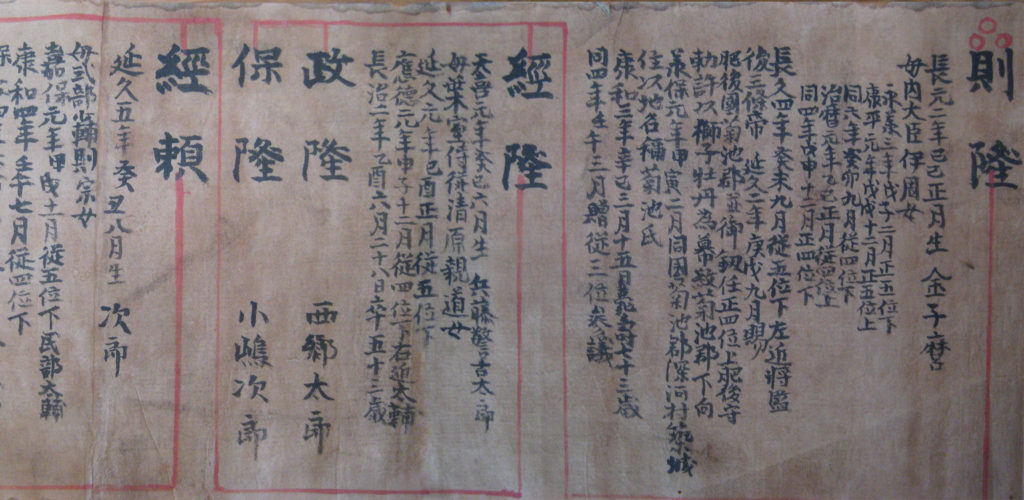 則隆
長元二年己巳正月生 金子麿
母内大臣伊周女
永承三年戊子二月正五位下
康平元年戊戌十二月正五位上
同六年癸卯九月従四位下
治暦元年乙巳正月従四位上
同四年戊申十二月正四位下
長久四年癸未九月従五位下左近将監
後三條帝 延久二年庚戌九月賜
肥後國菊池郡 御 釼任正四位上肥後守
勅許以獅子牡丹為幕紋菊池郡下向
承保元年甲寅二月同国菊池郡深河村築城
住以地名稱菊池氏
康和三年辛巳三月十五日 寿七十三歳
同四年壬午三月贈従三位
經隆
天喜元年癸巳六月生 太郎
母葉室侍従清原親道女
延久元年己酉正月従五位下
應徳元年甲子十二月従四位下右近太輔
長治二年乙酉六月二十八日卒五十三歳
政隆 西郷太郎
保隆 小嶋次郎
經頼
延久五年癸丑八月生 次郎
母式部少輔則宗女
嘉保元年甲戌十二月従五位下民部太輔
康和四年壬午七月従四位下